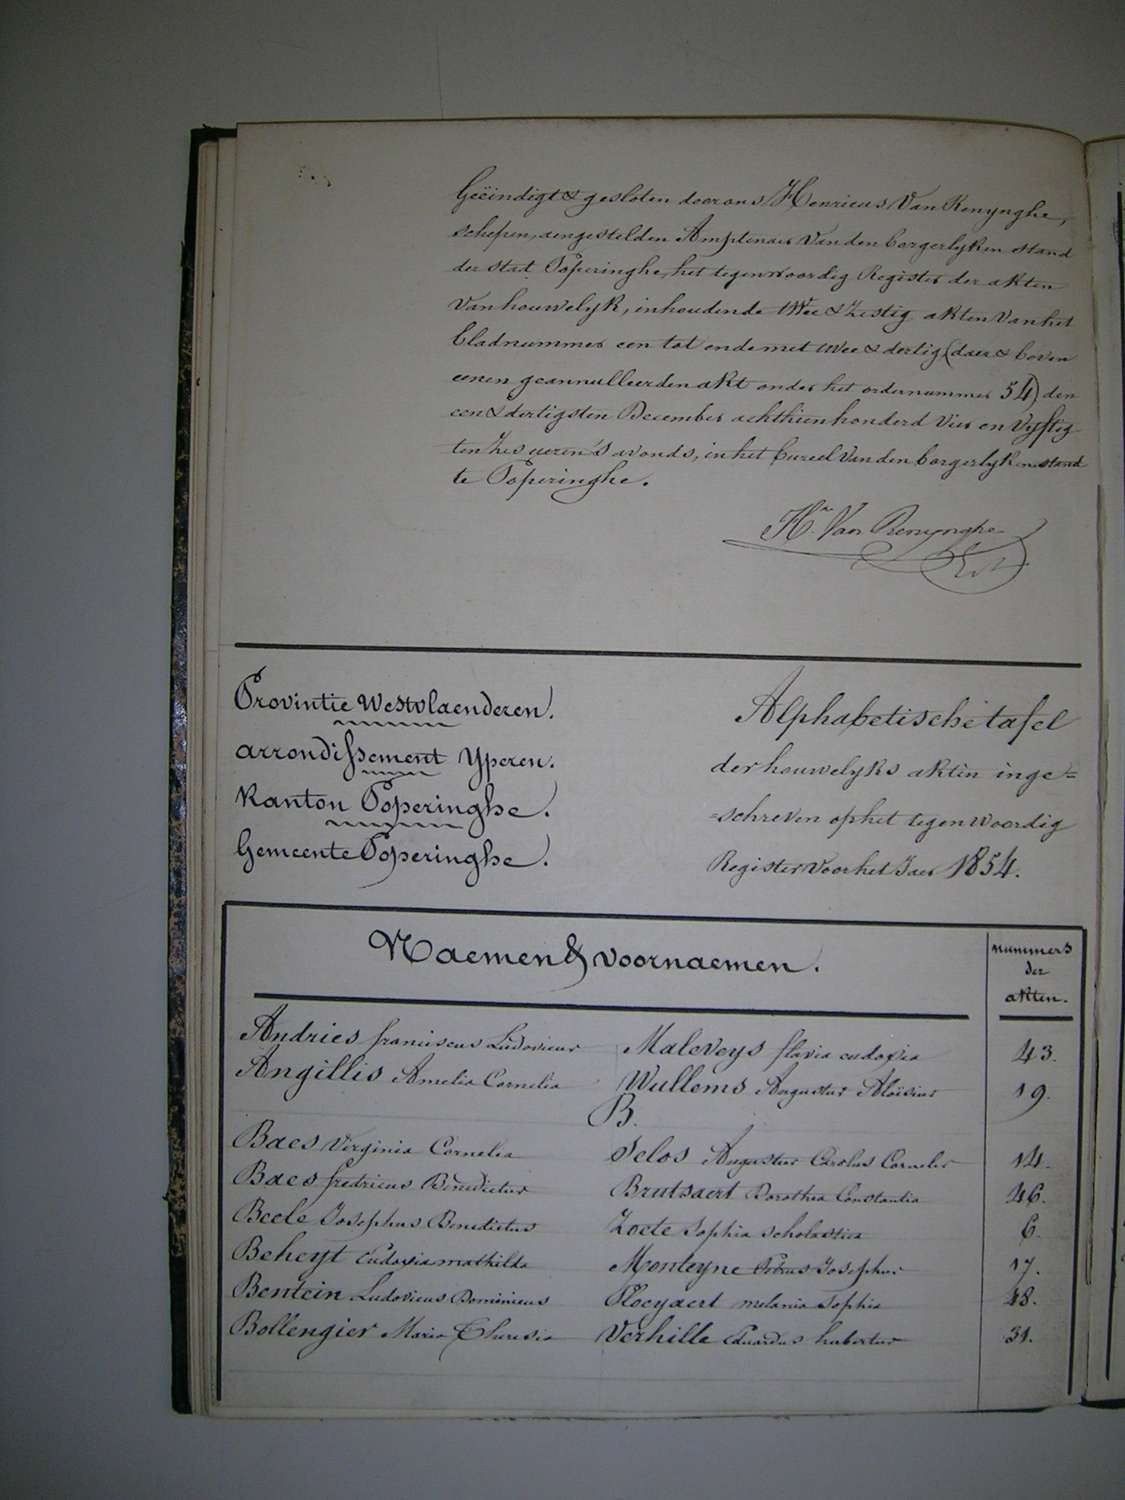 Geëindigt & gesloten door ons Henricus Van Renynghe,
schepen, aengestelden Amptenaer Van den borgerlyken stand
der stad Poperinghe, het tegenwoordig Register der akten
Van houwelyk, inhoudende twee & zestig akten Van het
bladnummer een tot ende met twee & dertig (daer & boven
eenen geannulleerden akt onder het ordernummer 54) den
een & dertigsten December achthien honderd Vier en Vyftig
ten zes ueren 's avonds, in het bureel Van den borgerlyken stand
te Poperinghe.
Hri. Van Renynghe
Provintie Westvlaenderen.
arrondissement Yperen.
Kanton Poperinghe.
Gemeente Poperinghe.
Alphabetische tafel
der houwelyks aktên inge=
=schreven op het tegenwoordig
Register voor het Jaer 1854.
Naemen & voornaemen. nummers der akten.
Andries franciscus Ludovicus Maleveys flavia eudoxia 43.
Angillis Amelia Cornelia Wullems Augustus Aloïsius 19.
B.
Baes Virginia Cornelia Selos Augustus Carolus Cornelis 14.
Baes fredricus Benedictus Brutsaert Dorothea Constantia 46.
Beele Josephus Benedictus Zoete Sophia scholastica 6.
Beheyt Eudoxia mathilda Monteyne Petrus Josephus 17.
Bentein Ludovicus Dominicus Ploeyaert melania Sophia 48.
Bollengier Maria Theresia Verhille Eduardus hubertus 31.